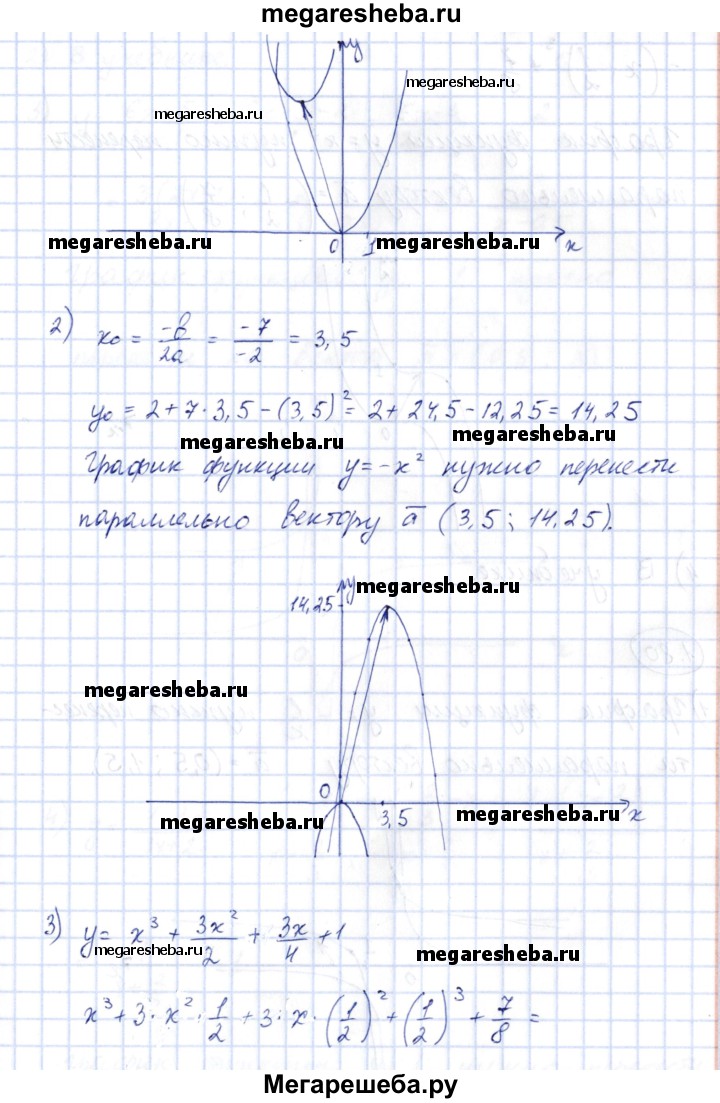 megaresheba.ru
y
megaresheba.ru
megaresheba.ru
0 1 x
megaresheba.ru
megaresheba.ru
2) x₀ = -b/2a = -7/-2 = 3,5
y₀ = 2+7·3,5-(3,5)² = 2+24,5-12,25=14,25
megaresheba.ru
megaresheba.ru
График функции y=-x² нужно перенести
параллельно вектору a̅ (3,5; 14,25).
y
megaresheba.ru
14,25
megaresheba.ru
0
3,5 x
megaresheba.ru
megaresheba.ru
3) y= x³ + 3x²/2 + 3x/4 +1
megaresheba.ru
megaresheba.ru
x³+3·x²·1/2+3·x·(1/2)²+(1/2)³+7/8=
Мегарешеба.ру